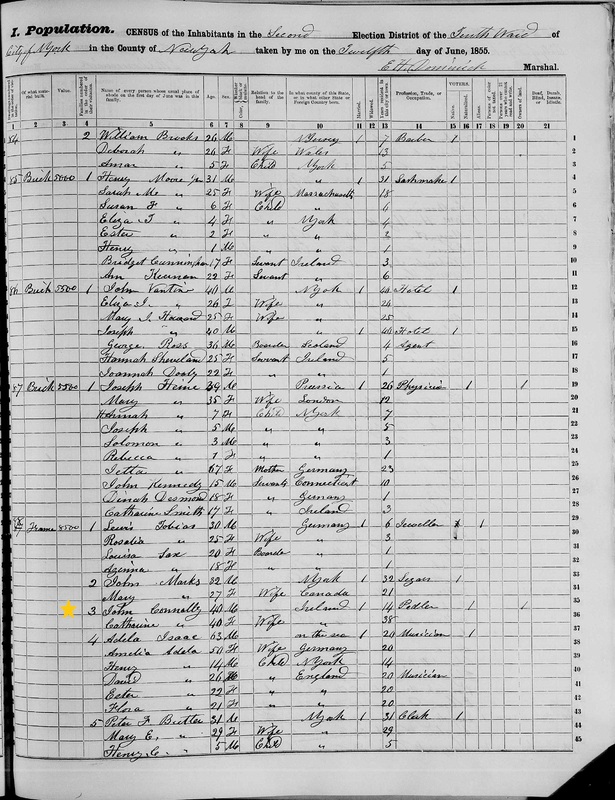 I. Population. CENSUS of the Inhabitants in the Second Election District of the Tenth Ward of
City of N York in the County of New York taken by me on the Twelfth day of June, 1855.
E H Dominick Marshal.
Name of every person whose usual place of abode on the first day of June was in this family.
Age. Sex. Relation to the head of the family. In what county of this State, or in what other State or Foreign Country born. Married. Widowed. Profession, Trade, or Occupation. VOTERS. Native. Naturalized. Aliens.
1 2 3 4 5 6 7 8 9 10 11 12 13 14 15 16 17 18 19 20 21
84 2 William Brooks 26 M N Jersey 1 7 Barber 1 1
Deborah " 26 F Wife Wales 13 2
" 5 F Child N York 5 3
85 Brick 5000 1 Henry Moore 31 M " 1 31 Sashmaker 1 4
Sarah " 25 F Wife Massachusetts 18 5
Susan F " 6 F Child " 6
Eliza T " 4 F " N York 4 7
Ester " 2 F " " 2 8
Henry " 1 M " " 1 9
Bridget Cunningham 17 F Servant Ireland 3 10
Ann 22 F Servant " 6 11
86 Brick 5500 1 John 40 M N York 1 Hotel 1 12
Eliza J. " 26 F Wife " 26 13
Mary J. 25 F Wife " 25 14
Joseph " 40 M " 1 40 Hotel 1 15
George Ross 36 M Boarder Scotland 4 Agent 16
Hannah 25 F Servant Ireland 5 17
Joannah 22 F " " 1 18
87 Brick 5500 1 Joseph Heine 39 M Prussia 1 26 Physician 1 1 19
Mary " 35 F Wife London 12 20
Hannah " 7 F Child N York 7 21
Joseph " 5 M " " 5 22
Solomon " 3 M " " 3 23
Rebecca " 1 F " " 1 24
Jetta " 67 F Mother Germany 23 25
John Kennedy 15 M Servants Connecticut 10 26
Dinah Desmond 18 F " Germany 1 27
Catharine Smith 17 F " Ireland 3 28
Frame 8500 1 Lewis Tobias 30 M Germany 1 6 Jeweller 1 29
Rosalia " 25 F Wife " 3 30
Louisa Sax 20 F Boarder " 1 31
" 18 F " " 1 32
2 John Marks 32 M N York 1 32 Segars 1 33
Mary " 27 F Wife Canada 21
3 John Connelly 40 M Ireland 1 14 Pedler 1 1 35
Catharine " 40 F Wife " 38 36
4 Adela Isaac 63 M on the sea 1 20 Musician 1 37
Amelia Adela 50 F Wife Germany 20 38
Henry " 14 M Child N York 14 39
David " 26 M " England 20 Musician 40
Ester " 22 F " " 20 41
Flora " 21 F " " 20 42
5 Peter F Butler 31 M N York 1 31 Clerk 1 43
Mary E. " 29 F Wife " 29 44
Henry C. " 5 M Child " 5 45